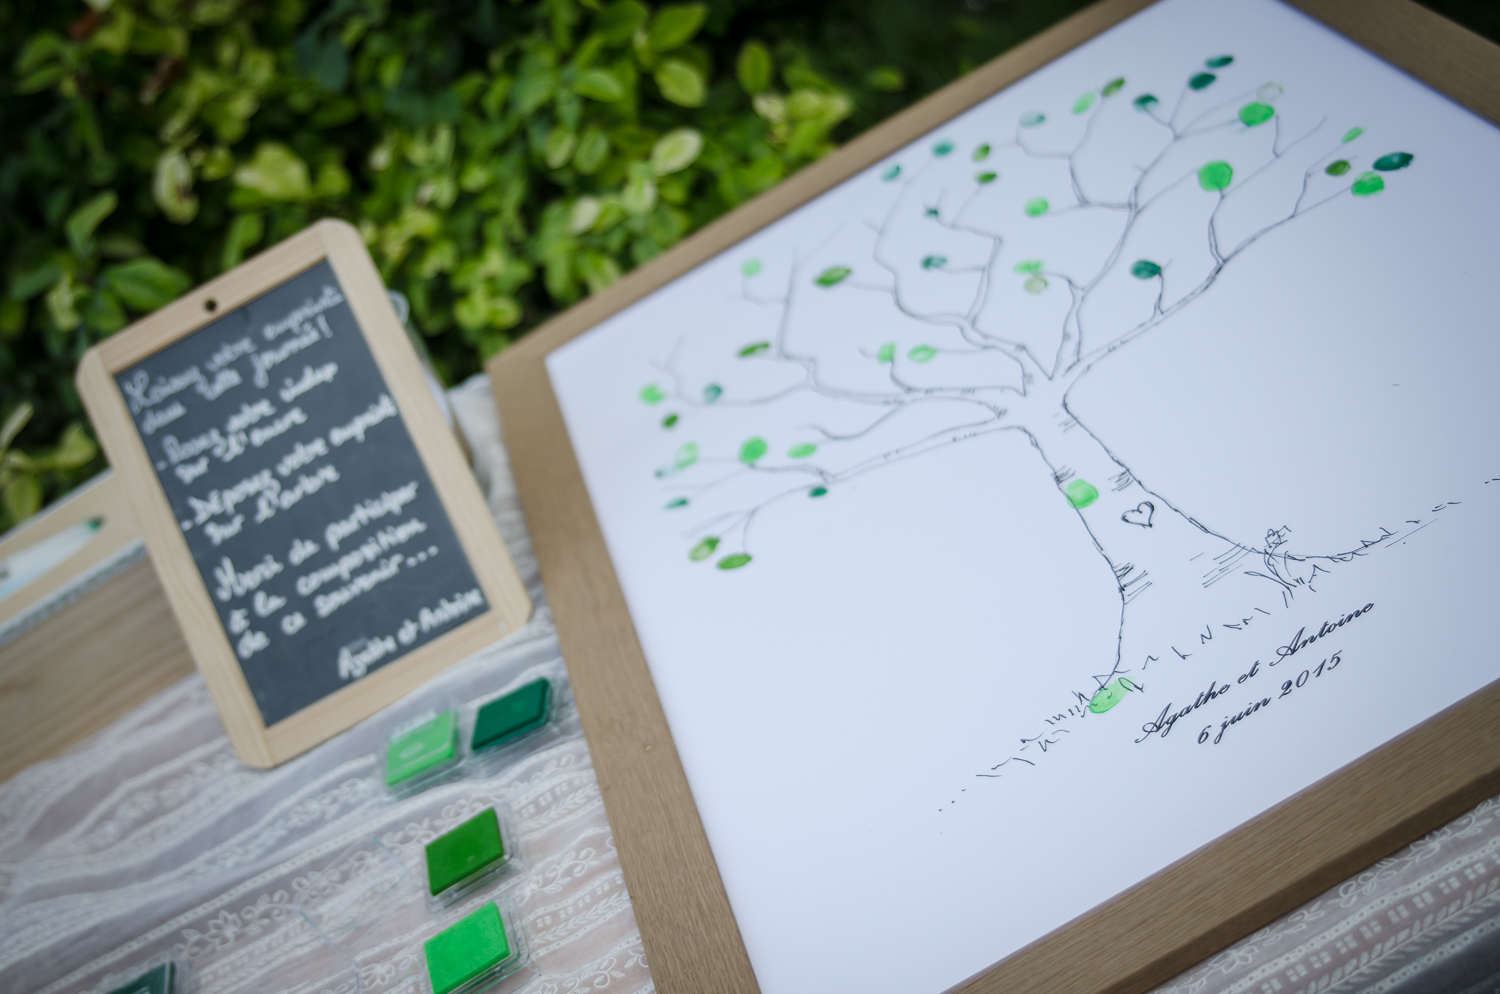 Laissez votre empreinte
dans cette journée!
- Posez votre index
sur l'encre
- Déposez votre empreinte
sur l'arbre
Merci de participer
à la composition
de ce souvenir...
Agathe et Antoine
Agathe et Antoine
6 juin 2015